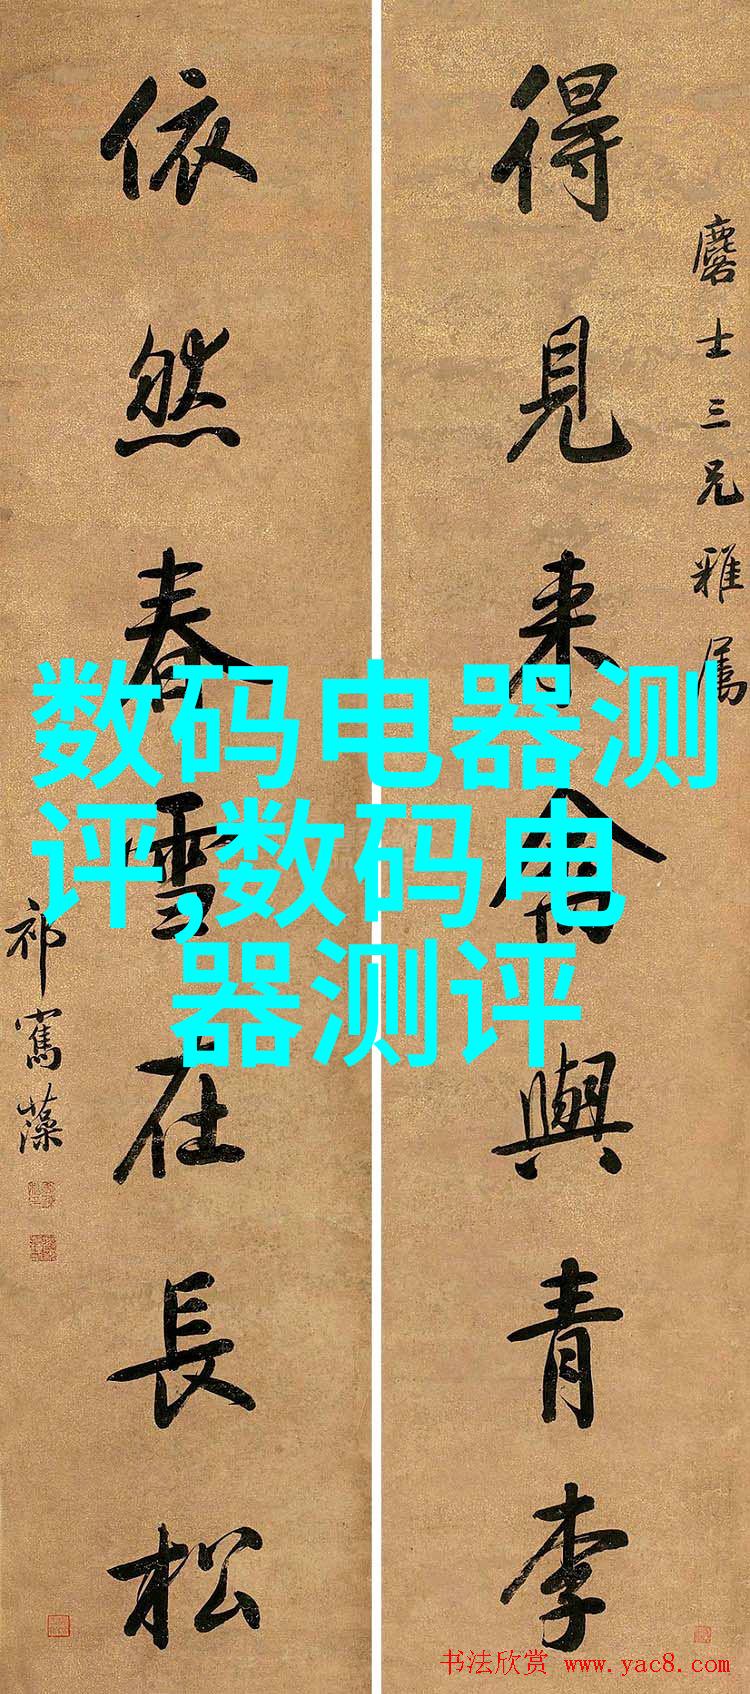 得見來禽與青李
麐士三兄雅屬
依然春雪在長松
祁寯藻
数码电器测
评,数码电
器测评
书法欣赏 www.yac8.com